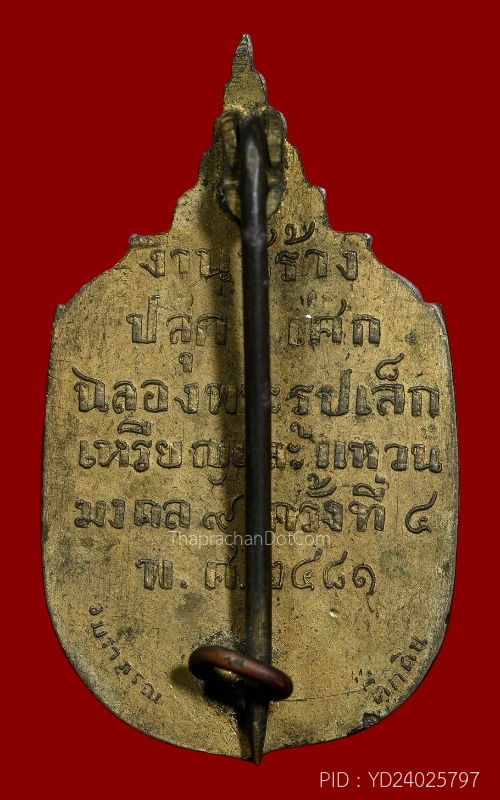 งาน สร้าง
ปลุก เศก
ฉลองพระรูปเล็ก
เหรียญและแหวน
มงคล ๙ ครั้งที่ ๔
พ.ศ. ๒๔๘๑
ThaprachanDotCom
PID : YD24025797